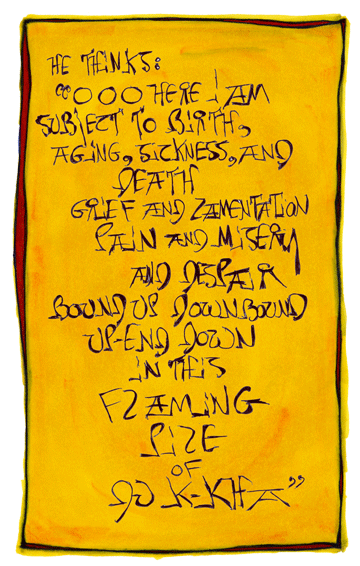 HE THINKS:
“O O O HERE I AM
SUBJECT TO BIRTH,
AGING, SICKNESS, AND
DEATH
GRIEF AND LAMENTATION
PAIN AND MISERY
AND DESPAIR
BOUND UP DOWNBOUND
UP-END DOWN
IN THIS
FLAMING
PILE
OF
DU K-KHA”